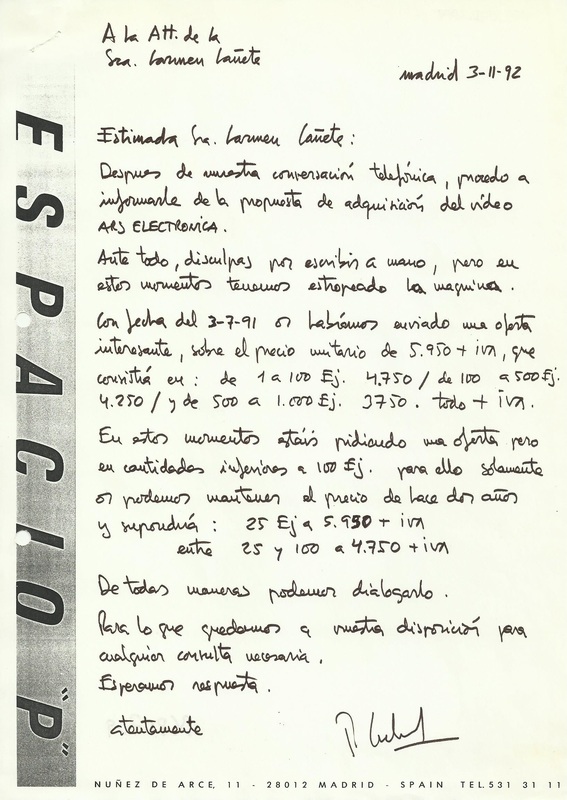 A la Att. de la
Sra. Carmen Cañete
madrid 3-11-92
ESPACIO "P"
Estimada Sra. Carmen Cañete:
Despues de nuestra conversación telefónica, procedo a
informarle de la propuesta de adquisición del vídeo
ARS ELECTRONICA.
Ante todo, disculpas por escribir a mano, pero en
estos momentos tenemos estropeado la maquina.
Con fecha del 3-7-91 os habíamos enviado una oferta
interesante, sobre el precio unitario de 5.950 + iva, que
consistiá en: de 1 a 100 Ej. 4.750 / de 100 a 500 Ej.
4.250 / y de 500 a 1.000 Ej. 3750. todo + iva.
En estos momentos estáis pidiendo una oferta pero
en cantidades inferiores a 100 Ej. para ello solamente
os podemos mantener el precio de hace dos años
y supondría: 25 Ej a 5.950 + iva
entre 25 y 100 a 4.750 + iva
De todas maneras podemos dialogarlo.
Para lo que quedamos a vuestra disposición para
cualquier consulta necesaria.
Esperamos respuesta.
atentamente
NUÑEZ DE ARCE, 11 - 28012 MADRID - SPAIN TEL. 531 31 11